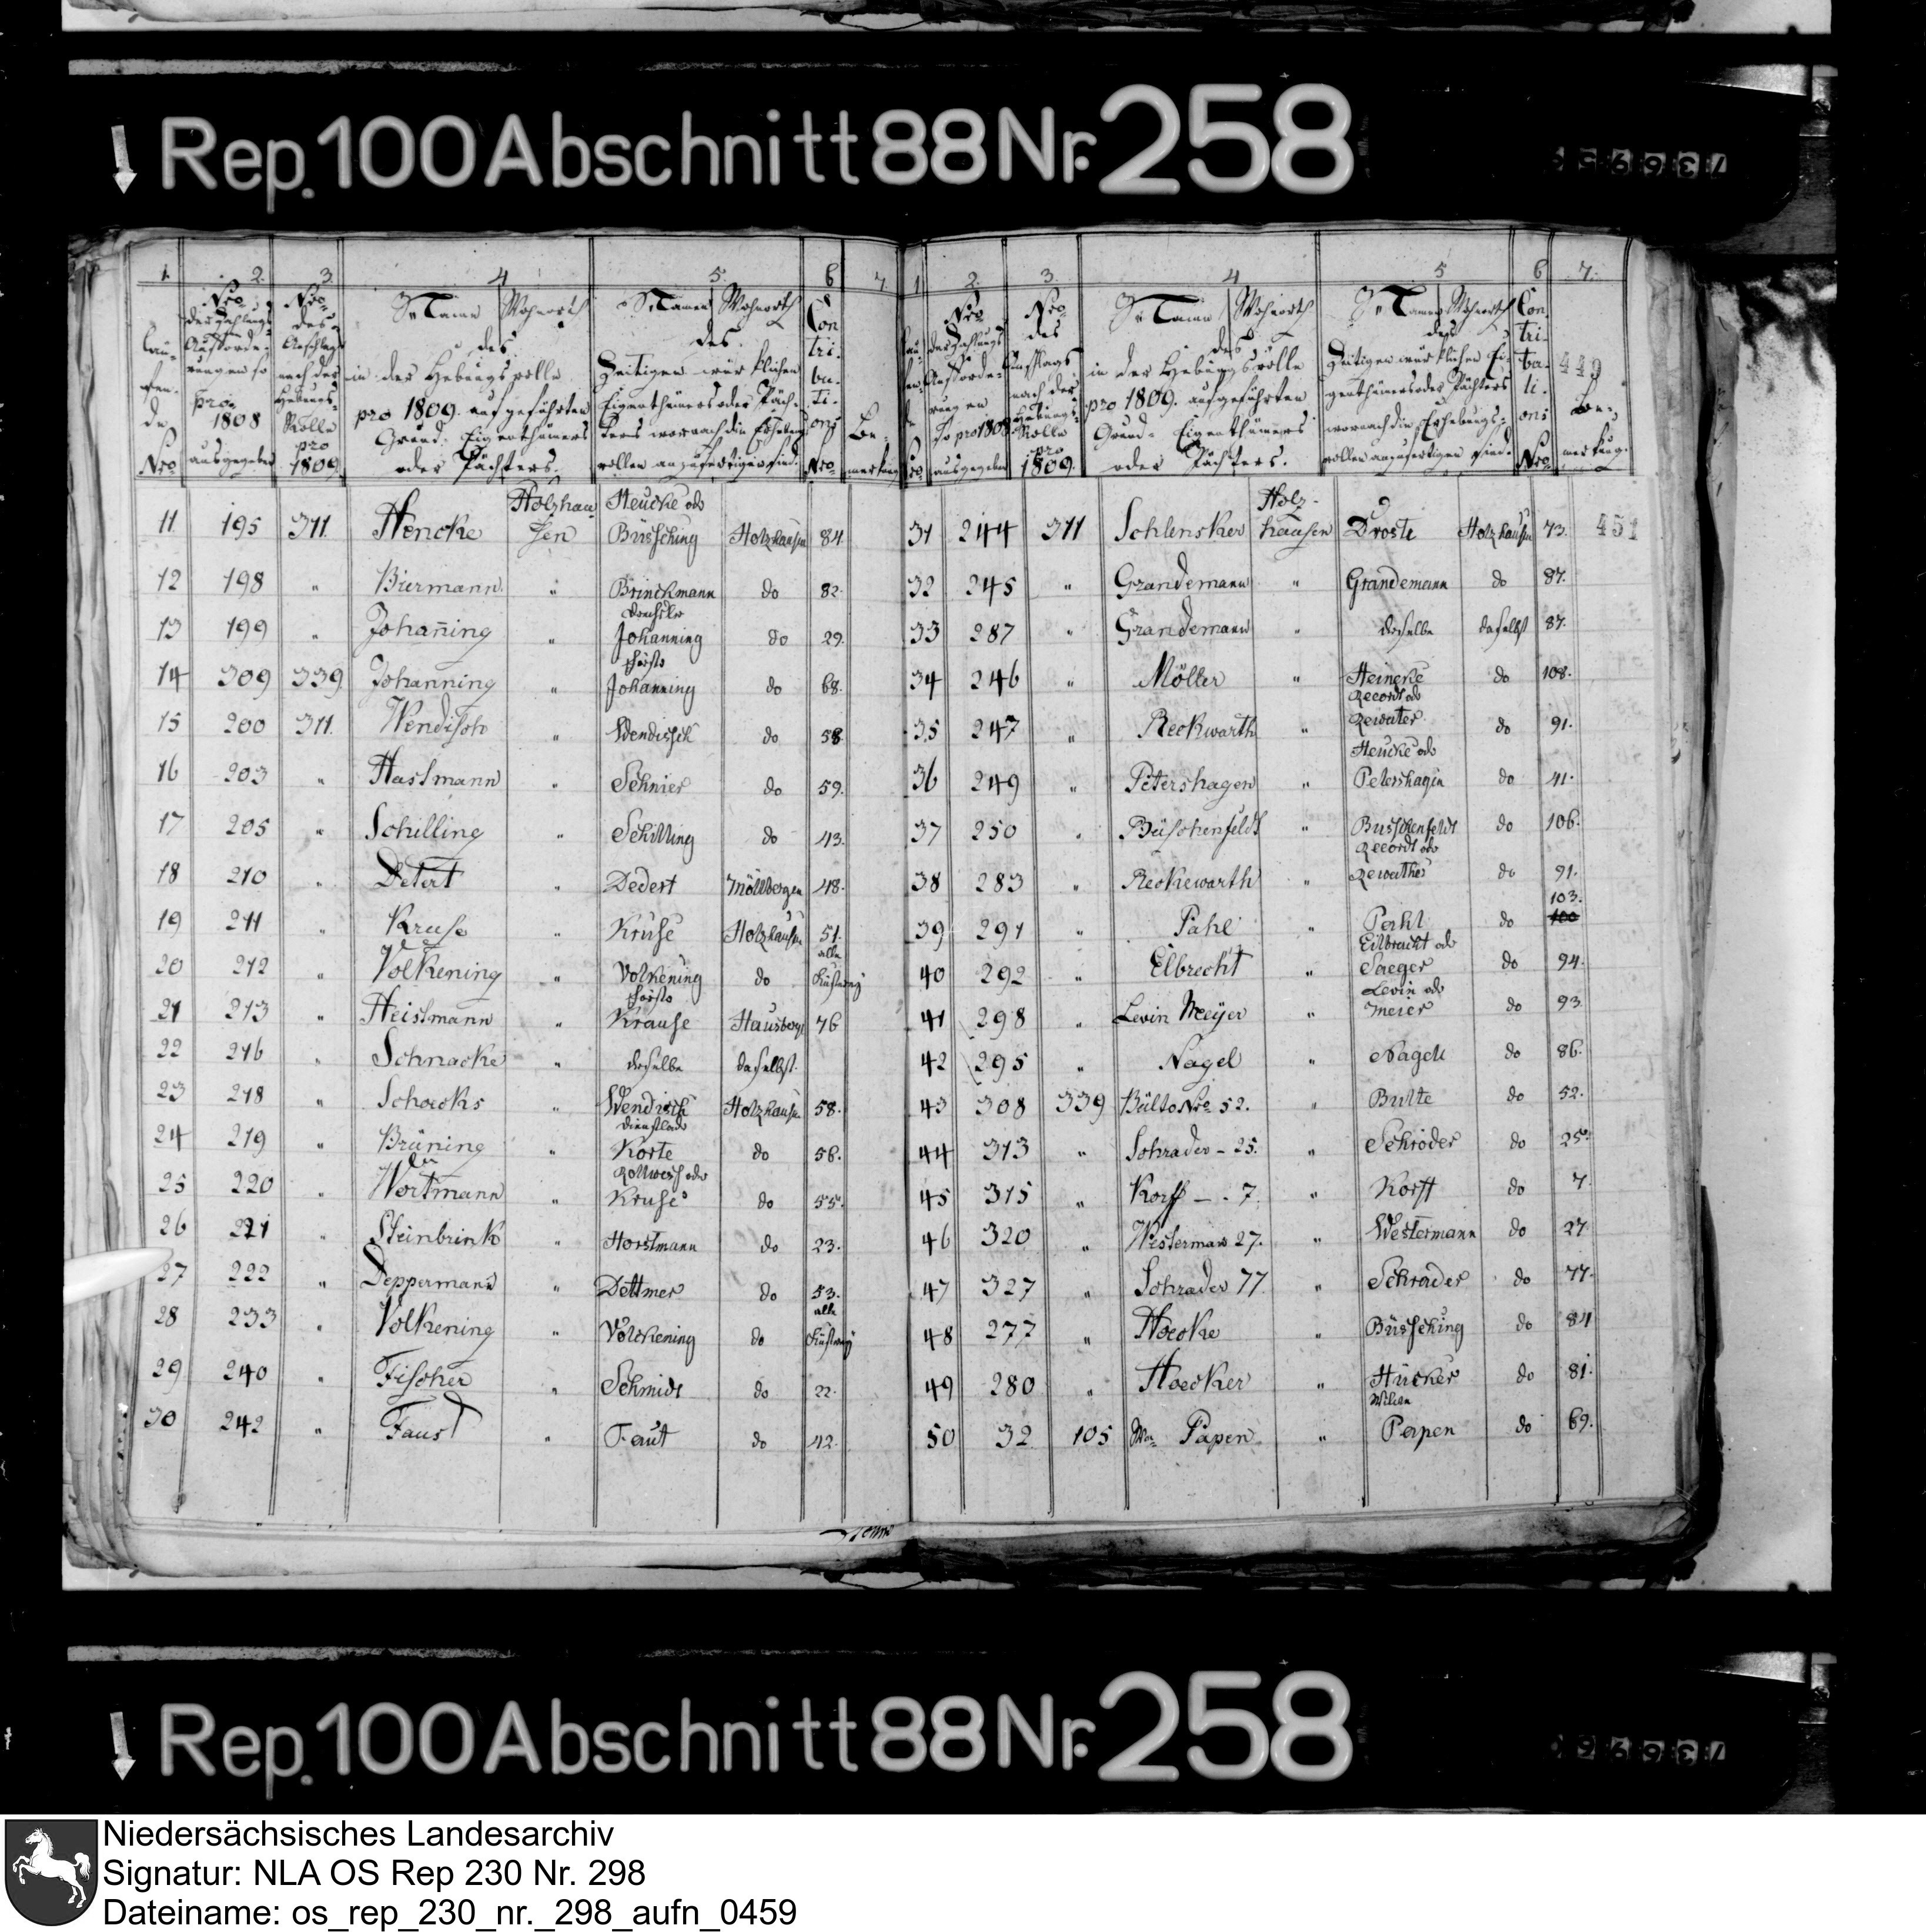 Rep. 100 Abschnitt 88 Nr. 258
1. 2. 3. 4 5. 6 7.
Lau-
fen-
de
Nro
Nro
der Zahlungs
Aufforde-
rungen so
pro
1808
ausgegeben
Nro
des
Anschlags
nach der
Hebungs-
Rolle
pro
1809.
Namen Wohnorth
des
in der Hebungsrolle
pro 1809. aufgeführten
Grund-Eigenthümers
oder Pächters.
Namen Wohnorth
des
Zeitigen würklichen
Eigenthümers oder Päch-
ters wornach die Erhebungs
rollen anzufertigen sind.
Con
tri-
bu-
ti-
ons
Nro
Be-
merkung
11 195 311. Hencke Holzhau sen Heucke od Büssching Holzhausen 84
12 198 " Biermann " Brinckmann do 82.
13 199 " Johanning " Johanning do 29.
14 309 339 Johanning " Johanning do 68.
15 200 311. Wendisch " Wendisch do 58
16 203 " Hassmann " Schnier do 59.
17 205 " Schilling " Schilling do 43.
18 210 " Detert " Dedert Möllbergen 48.
19 211 " Kruse " Kruse Holzhausen 51.
20 212 " Volkening " Volkening do
21 213 " Heistmann " Krause Hausberge 76
22 216 " Schnacke " derselbe daselbst.
23 218 " Schocks " Wendisch Holzhausen 58.
24 219 " Brüning " Korte do 56.
25 220 " Wortmann " Kruse do 55.
26 221 " Steinbrink " Horstmann do 23.
27 222 " Deppermann " Dettmer do 53.
28 233 " Volkening " Volckening do
29 240 " Fischer " Schmidt do 22.
30 242 " Faust " Faut do 42.
1 2. 3. 4 5 6 7.
Nro
der Zahlungs
Aufforde-
rungen
so pro 1808
ausgegeben
Nro
des
Anschlags
nach der
Hebungs-
Rolle
pro
1809.
Namen Wohnorth
des
in der Hebungsrolle
pro 1809. aufgeführten
Grund-Eigenthümers
oder Pächters.
Namen Wohnorth
des
Zeitigen würklichen Ei-
genthümers oder Pächters
wornach die Erhebungs-
rollen anzufertigen sind.
Con
tri-
bu-
ti-
ons
Nro
449
Be-
merkung.
31 244 311 Schlensker Holz- hausen Droste Holzhausen 73. 451
32 245 " Grandemann " Grandemann do 87.
33 287 " Grandemann " derselbe daselbst 87.
34 246 " Möller " Heincke do 108.
35 247 " Reckwarth " Recordt od Rewater do 91.
36 249 " Petershagen " Heucke od Petershagen do 41.
37 250 " Büschenfeldt " Buschenfeldt do 106.
38 283 " Reckewarth " Recordt od Rewather do 91.
39 291 " Pahl " Pahl do 103. 100
40 292 " Elbrecht " Eilbracht od Saeger do 94.
41 298 " Levin Meijer " Levin od Meier do 93
42 295 " Nagel " Nagell do 86.
43 308 339 Bülte Nro 52. " Bulte do 52.
44 313 " Schrader - 25. " Schröder do 25.
45 315 " Korff - . 7. " Korff do 7
46 320 " Westerman 27. " Westermann do 27
47 327 " Schrader 77. " Schrader do 77.
48 277 " Hoecke " Büssching do 84
49 280 " Hoecker " Hücker do 81.
50 32 105 Papen " Papen do 69.
Rep. 100 Abschnitt 88 Nr. 258
Niedersächsisches Landesarchiv
Signatur: NLA OS Rep 230 Nr. 298
Dateiname: os_rep_230_nr._298_aufn_0459